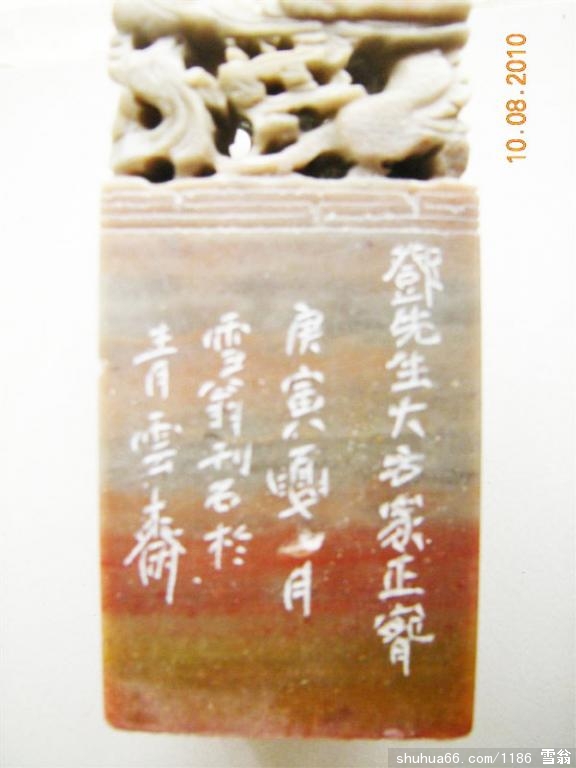 鄧先生大方家正
庚寅夏月
雪翁刊石於
青雲齋
10.08.2010
shuhua66.com/1186 雪翁